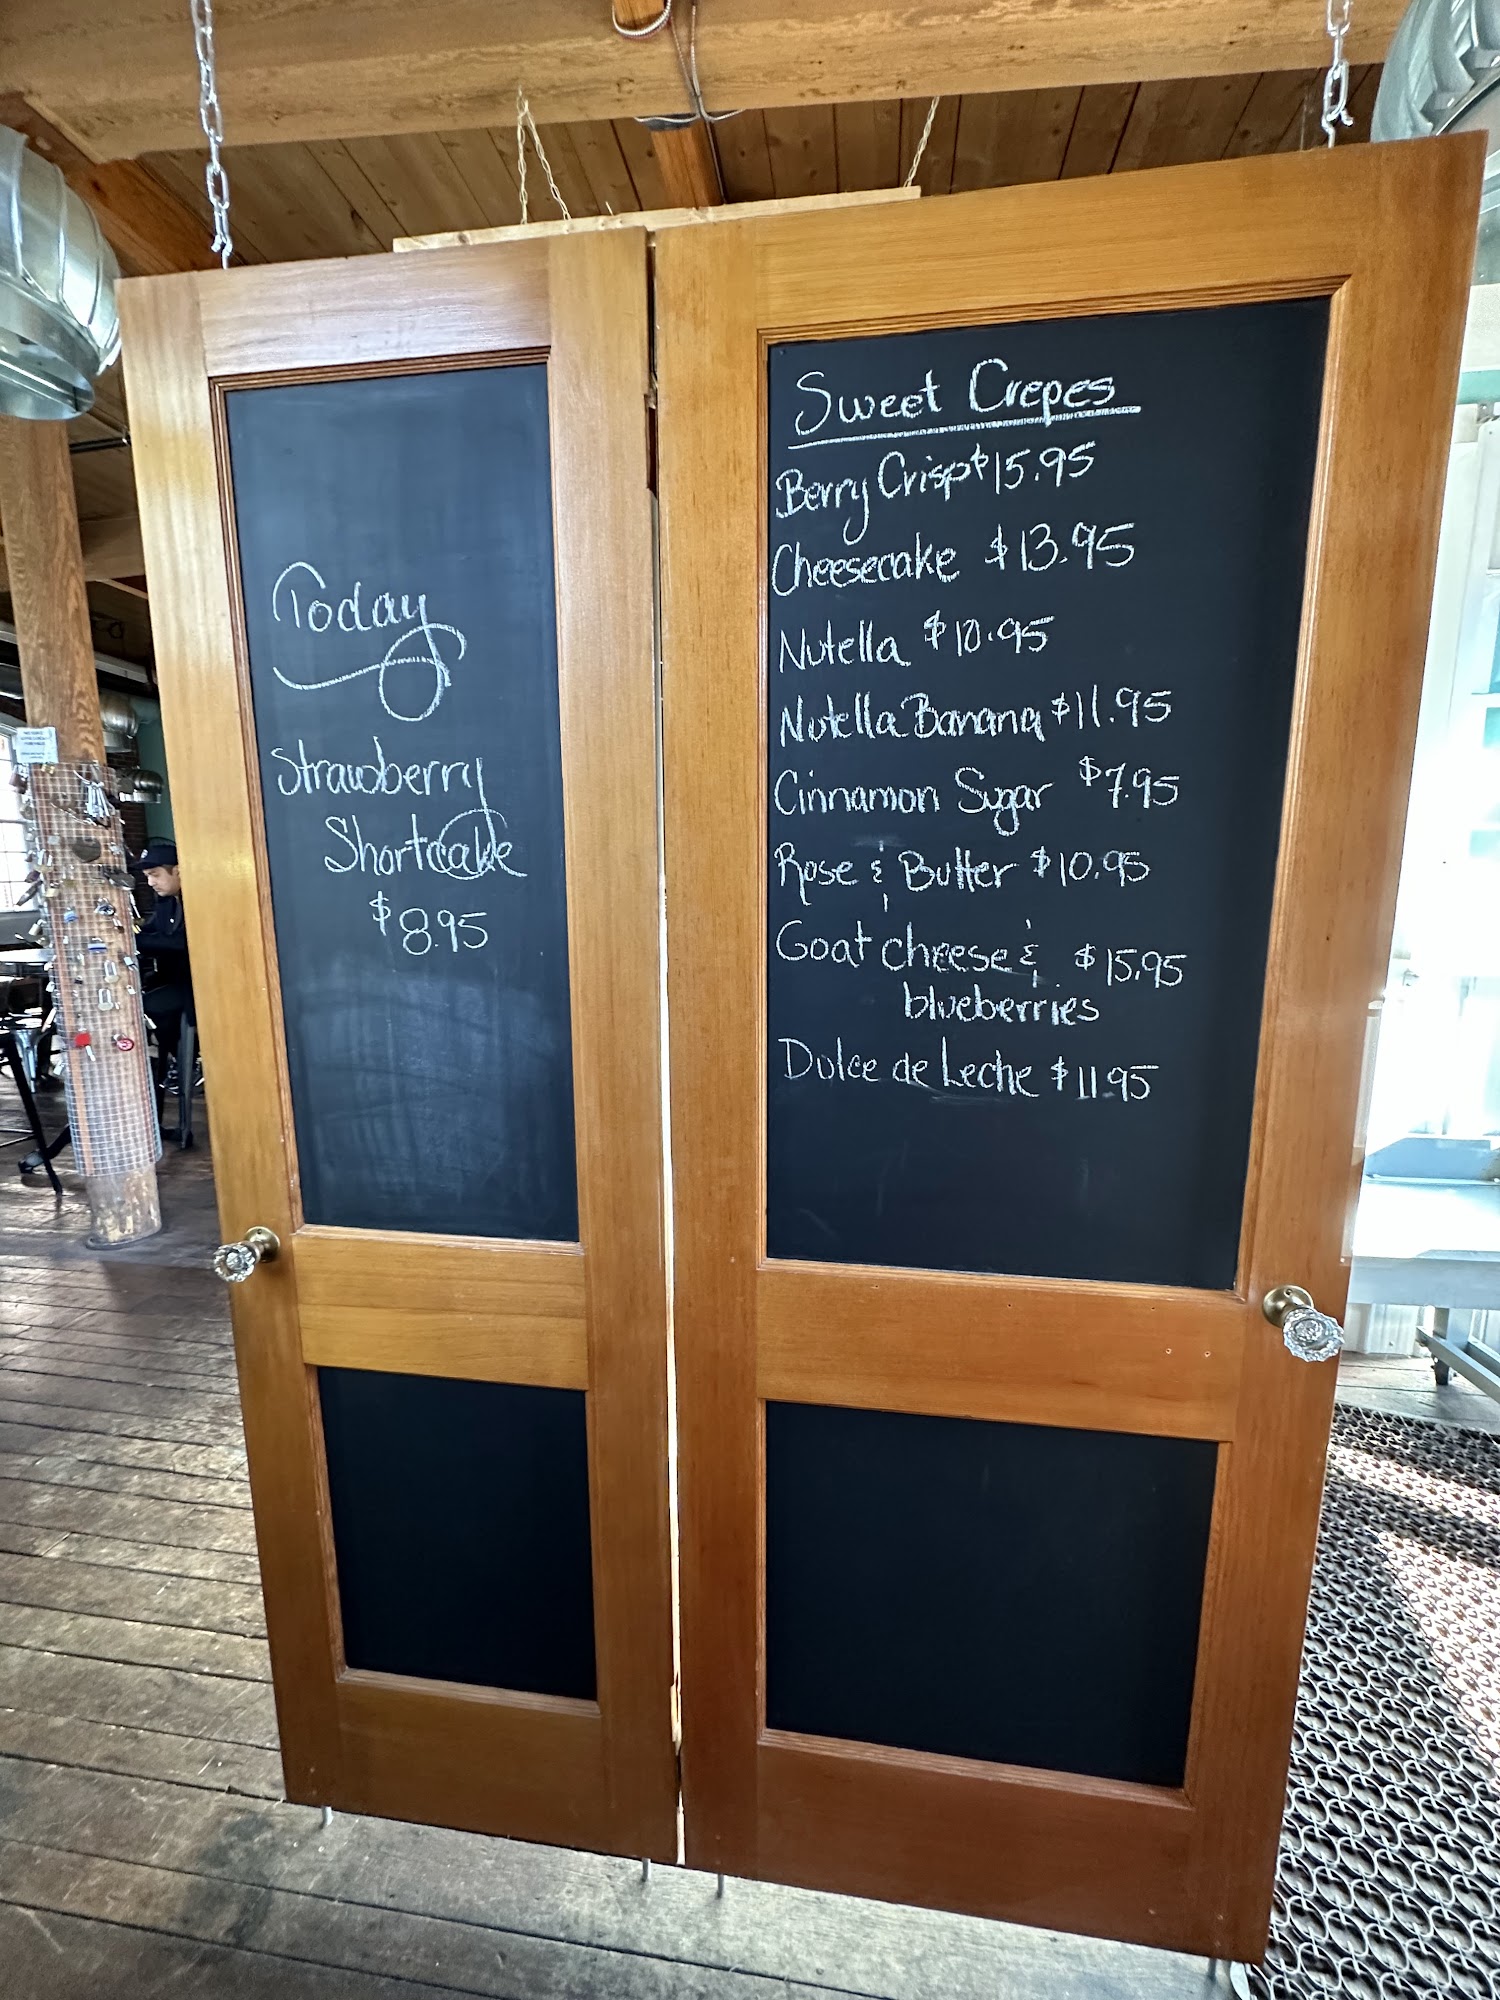 Today
Strawberry
Shortcake
$8.95
Sweet Crepes
Berry Crisp $15.95
Cheesecake $13.95
Nutella $10.95
Nutella Banana $11.95
Cinnamon Sugar $7.95
Rose & Butter $10.95
Goat cheese & $15.95
blueberries
Dulce de Leche $11.95